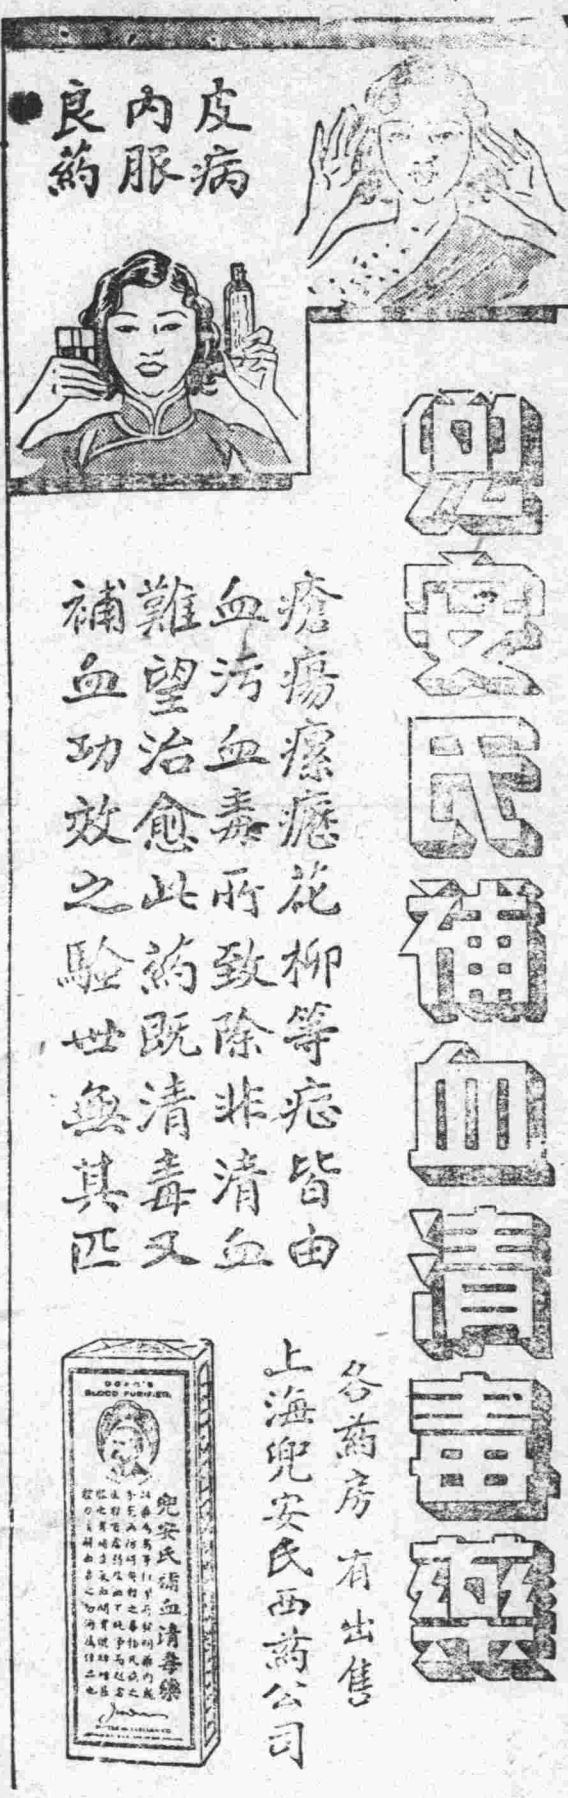 皮病
內服
良藥
兜安氏補血清毒藥
瘡瘍瘰癧花柳等症皆由
血污血毒所致除非清血
難望治愈此药既清毒又
補血功效之驗世無其匹
各药房有出售
上海兜安氏西药公司
DOAN'S
BLOOD PURIFIER
兜安氏補血清毒藥